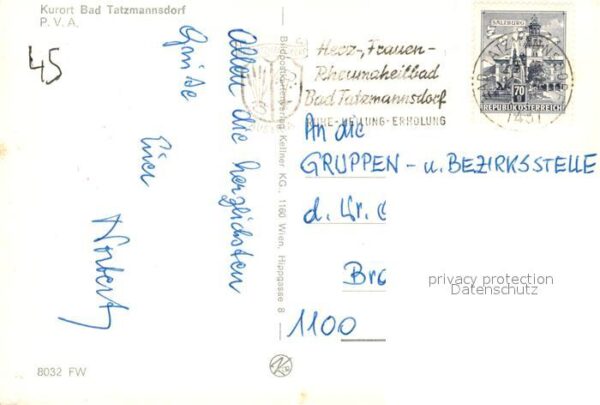 Kurort Bad Tatzmannsdorf
P. V. A.
45
Allen die herzlichsten
Grüße
Euer
Norbert
Bildpostkartenverlag Kellner KG., 1160 Wien, Hippgasse 8
Herz-, Frauen-
Rheumaheilbad
Bad Tatzmannsdorf
RUHE-HEILUNG-ERHOLUNG
SALZBURG
70
REPUBLIK ÖSTERREICH
7431
An die
GRUPPEN- u. BEZIRKSSTELLE
d.
Bro
1100
privacy protection
Datenschutz
8032 FW